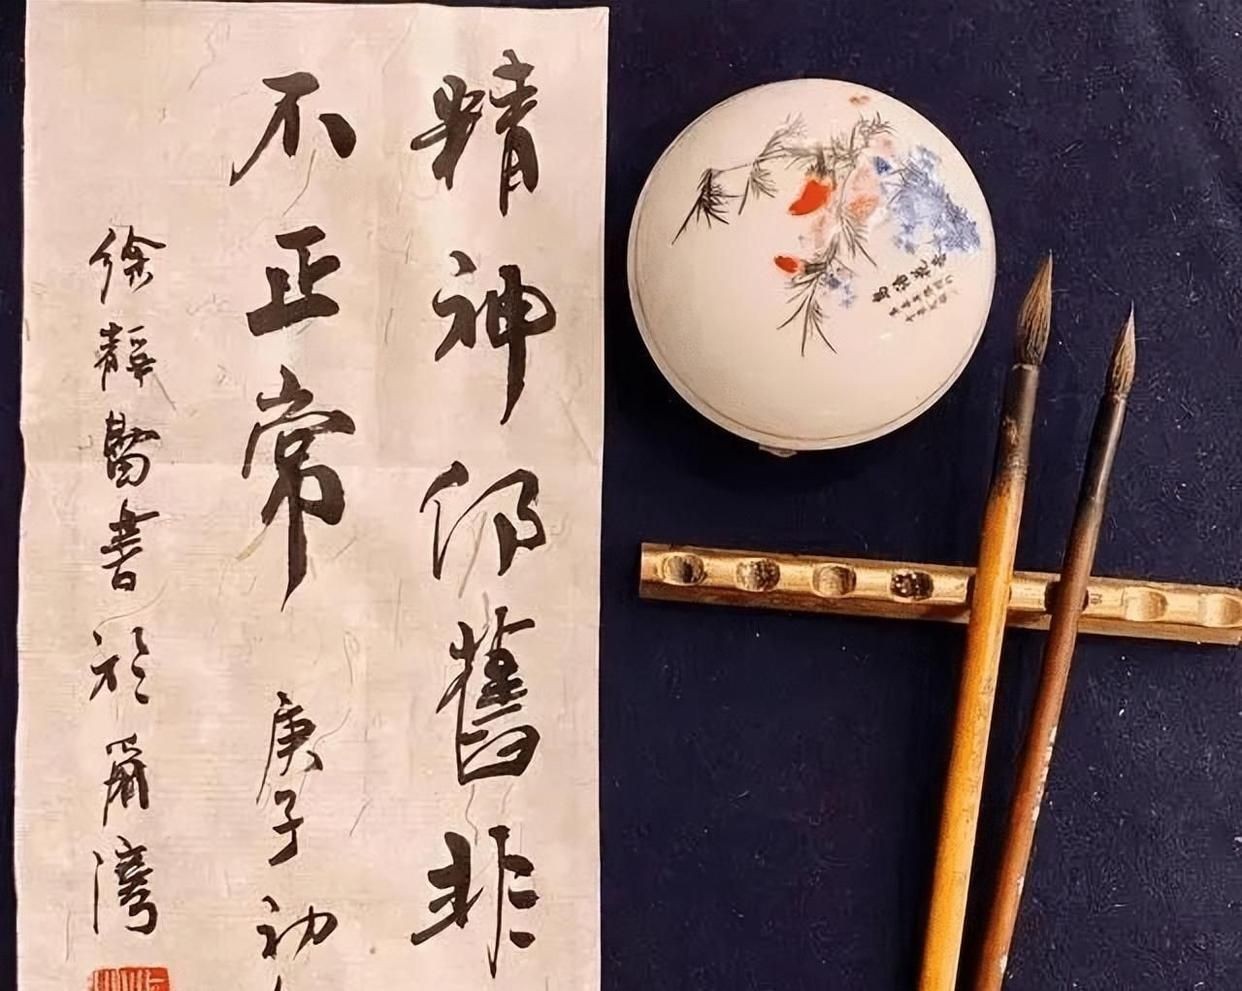 精神仍舊非
不正常 庚子初
徐靜蕾書於菊灣